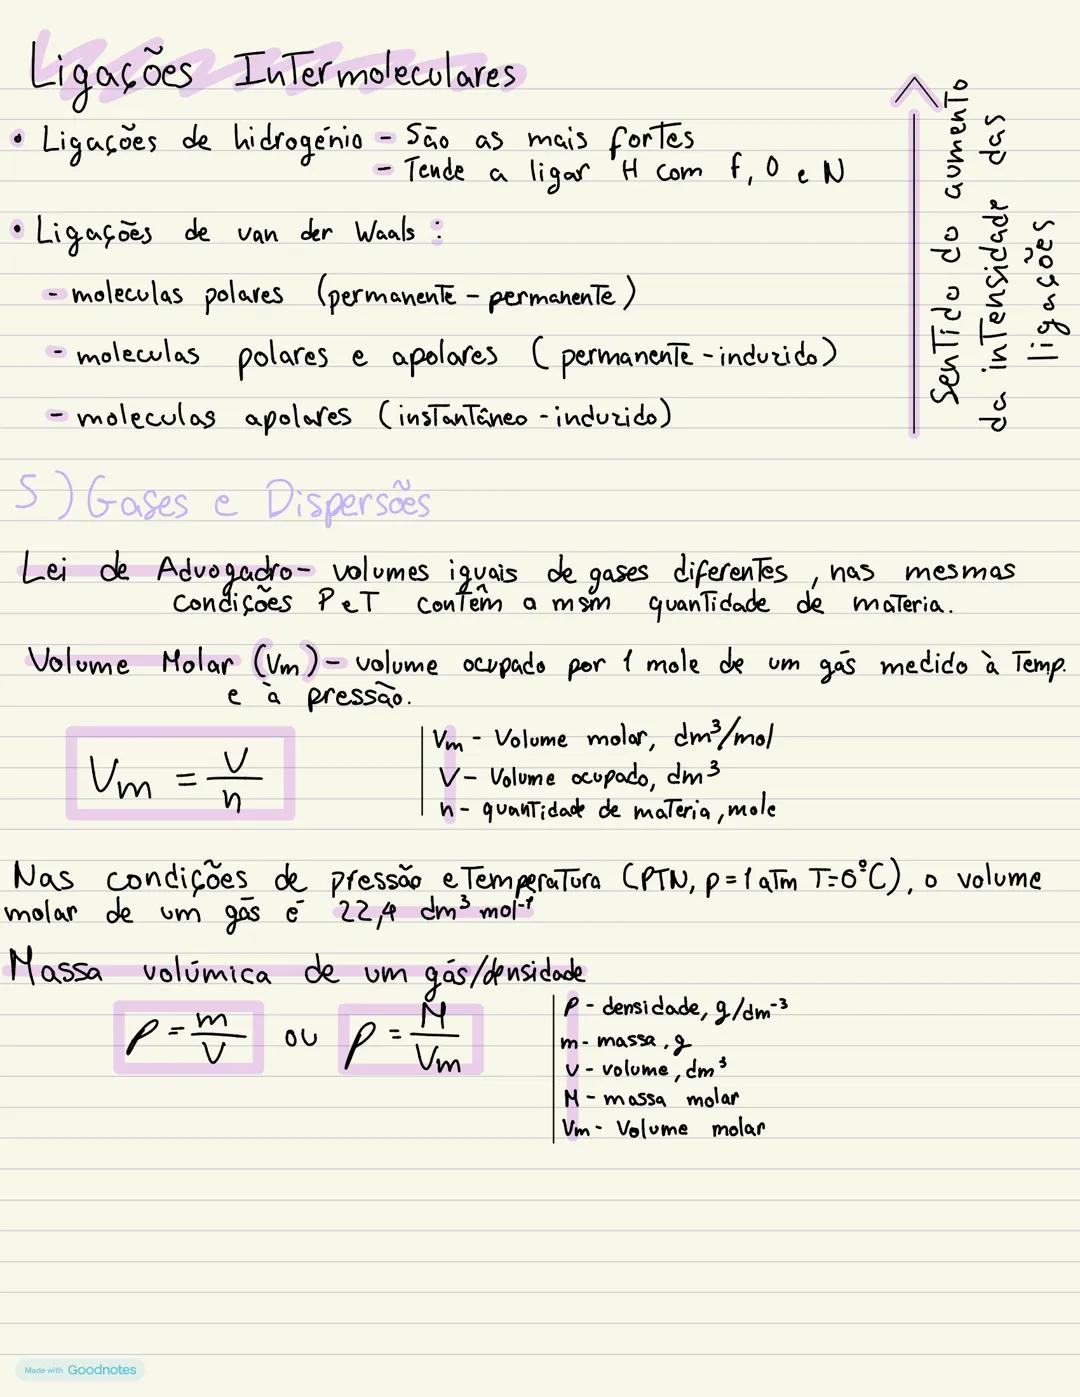 Ligações Intermoleculares
• Ligações de hidrogénio - São as mais fortes
- Tende a ligar H com f, O e N
• Ligações de van der Waals :
- moleculas polares (permanente - permanente)
- moleculas polares e apolares (permanente - induzido)
- moleculas apolares (instantâneo - induzido)
Sentido do aumento
da intensidade das
ligações
5) Gases e Dispersões
Lei de Advogadro - volumes iguais de gases diferentes, nas mesmas
condições P e T contêm a msm quantidade de materia.
Volume Molar (Vm) - volume ocupado por 1 mole de um gás medido à Temp.
e à pressão.
Vm = V/n
Vm - Volume molar, dm³/mol
V - Volume ocupado, dm³
n - quantidade de materia, mole
Nas condições de pressão e Temperatura (PTN, p = 1 atm T = 0°C), o volume
molar de um gás é 22,4 dm³ mol⁻¹
Massa volúmica de um gás/densidade
ρ = m/V ou ρ = M/Vm
ρ - densidade, g/dm⁻³
m - massa, g
V - volume, dm³
M - massa molar
Vm - Volume molar
Made with Goodnotes